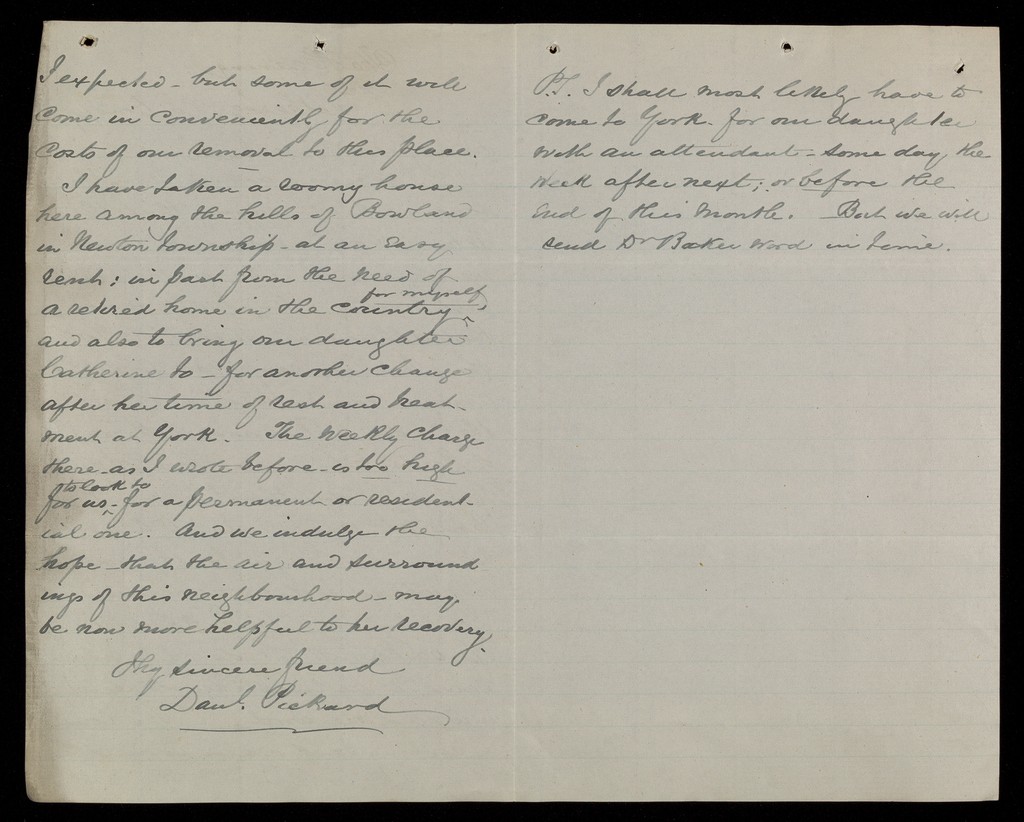 I expected - but some of it will
come in conveniently for the
costs of our removal to this place.
I have taken a roomy house
here among the hills of Bowland
in Newton township - at an easy
rent: in part from the need of
for myself,
a retired home in the country ^
and also to bring our daughter
Catherine to - for another change
after her time of rest and treat-
ment at York. The weekly charge
there - as I wrote before - is too high
to look to
for us ^ - for a permanent or resident-
ial one. And we indulge the
hope - that the air and surround
ings of this neighbourhood - may
be now more helpful to her recovery.
Thy sincere friend
Danl. Pickard
P.S. I shall most likely have to
come to York - for our daughter
with an attendant - some day the
week after next; or before the
end of this month. But we will
send Dr Baker word in time.